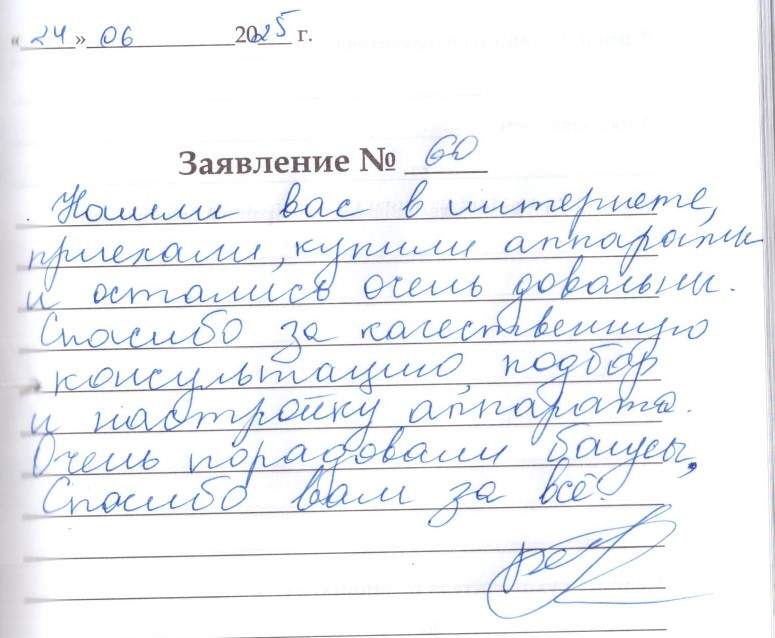 «24» 06 2025 г.
Заявление № 60
Нашли вас в интернете,
приехали, купили аппараты
и остались очень довольны.
Спасибо за качественную
консультацию, подбор
и настройку аппарата.
Очень порадовали бонусы,
Спасибо вам за всё.